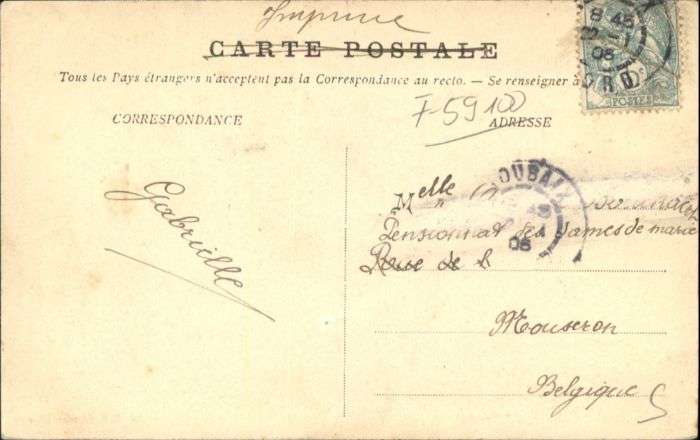 Imprimé
CARTE POSTALE
Tous les Pays étrangers n'acceptent pas la Correspondance au recto. — Se renseigner à
F-59100
CORRESPONDANCE
ADRESSE
Gabrielle
Melle
Pensionnat des Dames de marie
Rue de
Mouscron
Belgique
8 45
06
POSTES
OUBAIX
45
06